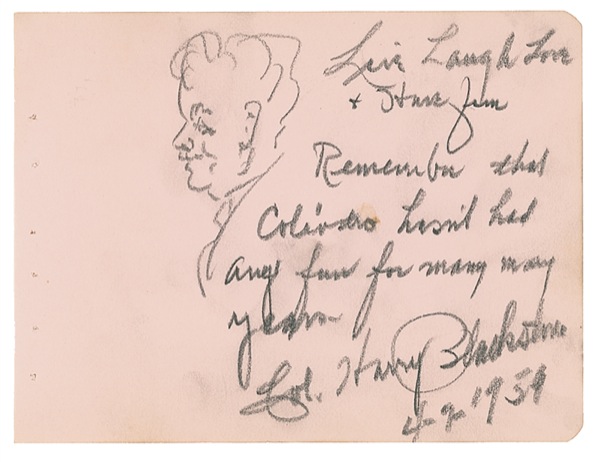 Live Laugh Love
+ Have fun
Remember that
hasn't had
any fun for many many
years
Col. Harry Blackstone
4-2-1959